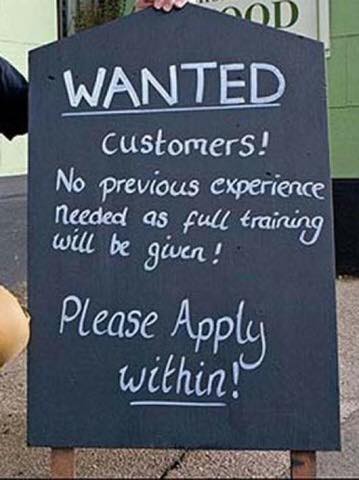 OOD
WANTED
Customers!
No previous experience
needed as full training
will be given!
Please Apply
within!